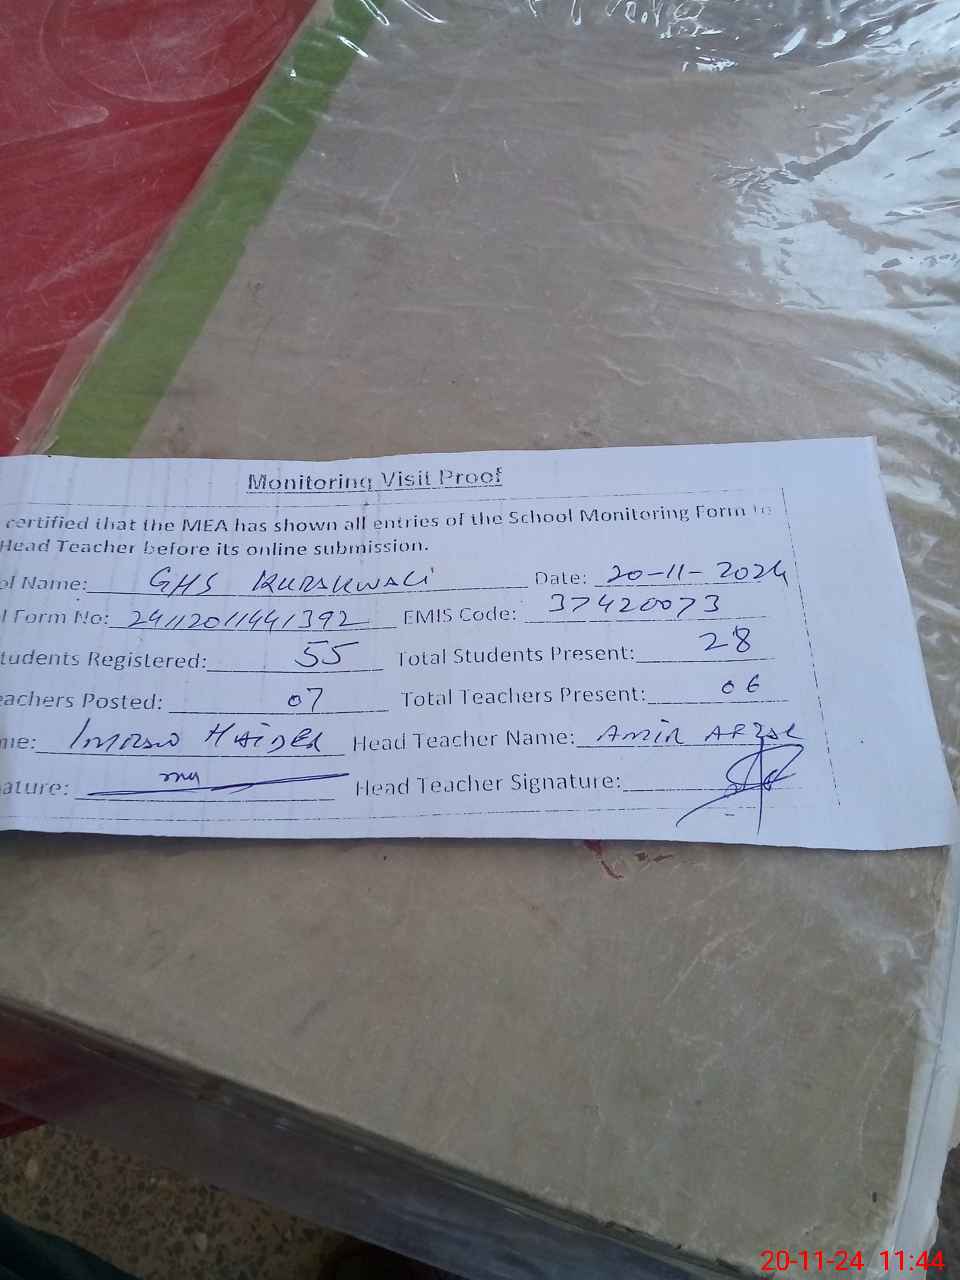 Monitoring Visit Proof
certified that the MEA has shown all entries of the School Monitoring Form to
Head Teacher before its online submission.
ol Name: GHS Date: 20-11-2024
l Form No: 241120114441392 EMIS Code: 37420073
tudents Registered: 55 Total Students Present: 28
eachers Posted: 07 Total Teachers Present: 06
me: HAIDER Head Teacher Name: AMIR AFZAL
ature: Head Teacher Signature:
20-11-24 11:44